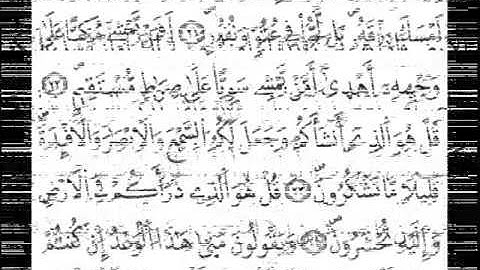 أمسك رزقه بل لجوا في عتو ونفور ٢١ أفمن يمشي مكبا على
وجهه أهدى أمن يمشي سويا على صراط مستقيم ٢٢
قل هو الذي أنشأكم وجعل لكم السمع والأبصار والأفئدة
قليلا ما تشكرون ٢٣ قل هو الذي ذرأكم في الأرض
وإليه تحشرون ٢٤ ويقولون متى هذا الوعد إن كنتم